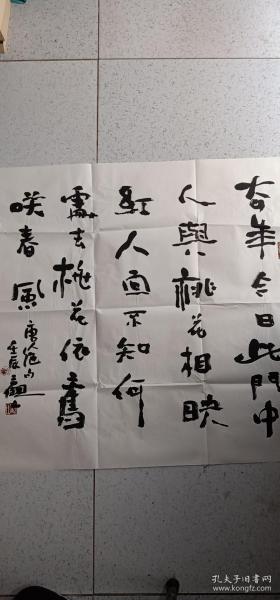 去年今日此門中
人與桃花相映
紅人面不知何
處去桃花依舊
咲春風
孔夫子旧书网
www.kongfz.com